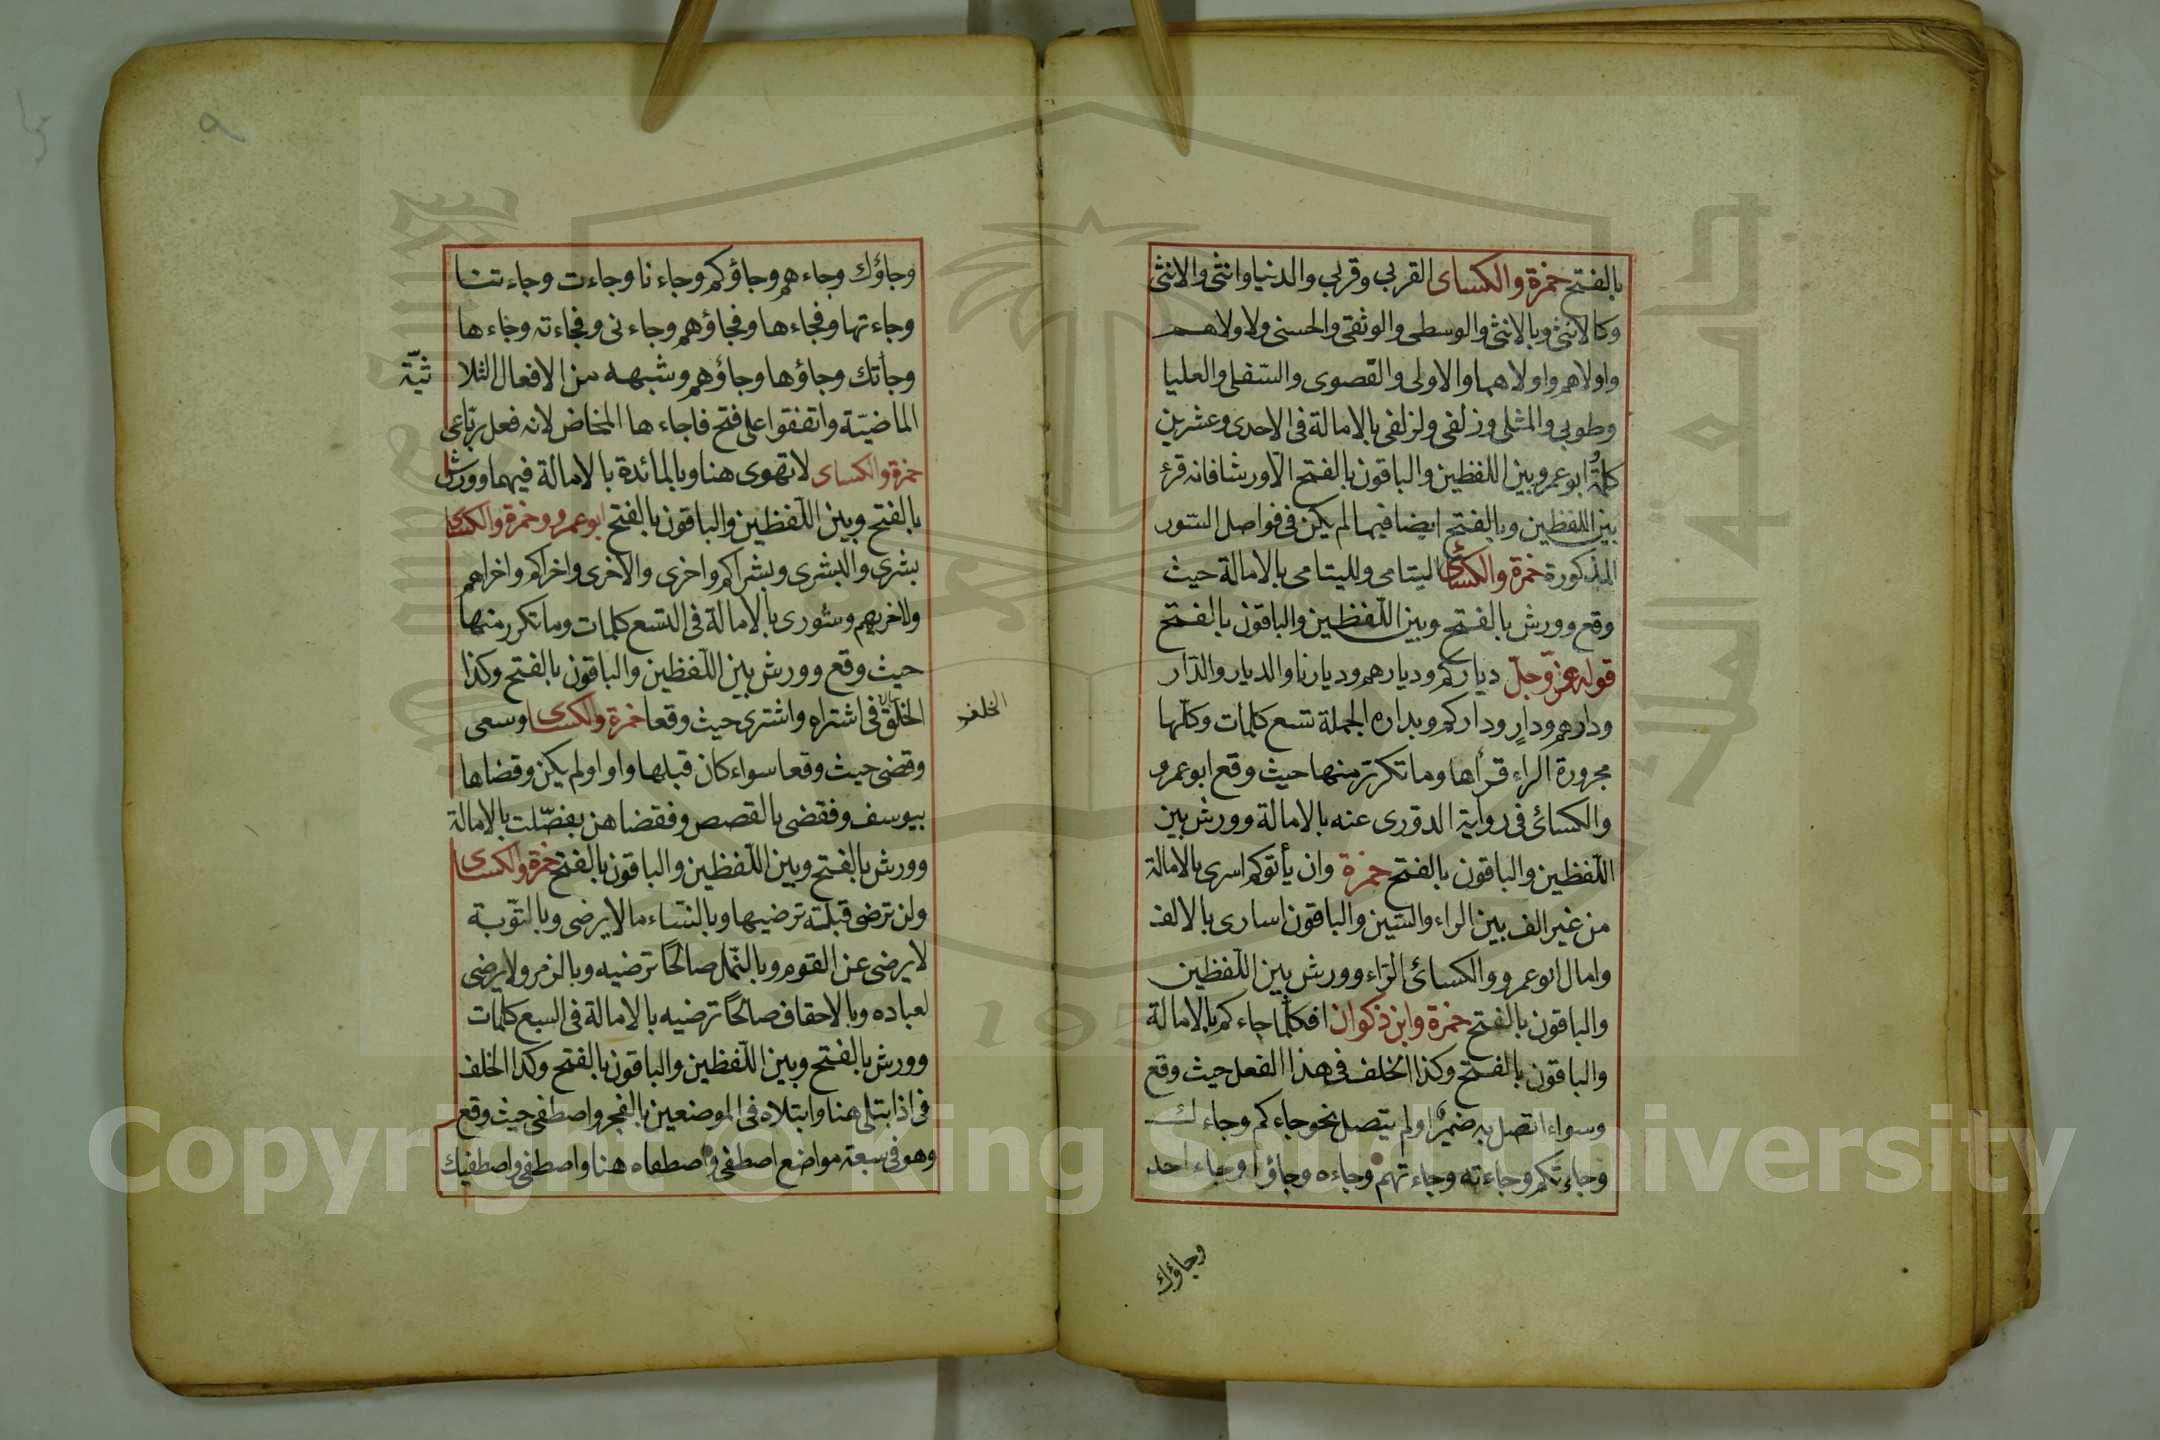 بالفتح حمزة والكسائ القربى وقربى والدنيا وانثى والانثى
وكالانثى وبالانثى والوسطى والوثقى والحسنى ولاولاهم
واولاهم واولاهما والاولى والقصوى والسّفلى والعليا
وطوبى والمثلى وزلفى ولزلفى بالامالة فى الاحدى وعشرين
كلمةً ابو عمرو بين اللفظين والباقون بالفتح الّا ورشا فانه قرئ
بين اللفظين وبالفتح ايضا فيما لم يكن فى فواصل السّور
المذكورة حمزة والكسائ اليتامى ولليتامى بالامالة حيث
وقع وورش بالفتح وبين اللّفظين والباقون بالفتح
قوله عزّ وجلّ دياركم وديارهم وديارنا والديار والدّار
ودارهم ودارٍ وداركم وبداره الجملة تسع كلمات وكلّها
مجرورة الراء قرأها وما تكرّر منها حيث وقع ابو عمرو
والكسائ فى رواية الدوّرى عنه بالامالة وورش بين
اللّفظين والباقون بالفتح حمزة وان يأتوكم اسرى بالامالة
من غير الف بين الراء والسّين والباقون اسارى بالالف
وامال ابو عمرو والكسائ الرّاء وورش بين اللّفظين
والباقون بالفتح حمزة وابن ذكوان افكلّما جاءكم بالامالة
والباقون بالفتح وكذا الخلف فى هذا الفعل حيث وقع
وسواء اتصل به ضميرٌ او لم يتصل نحو جاءكم وجاءك
وجاءتكم وجاءته وجاءتهم وجاءه وجاؤا وجاء احد
وجاؤك
وجاؤك وجاءهم وجاؤكم وجاءنا وجاءت وجاءتنا
وجاءتها وفجاءها وفجاؤهم وجاءنى وفجاءته وجاءها
وجاتك وجاؤها وجاؤهم وشبهه من الافعال الثلا
ثيّة
الماضيّة واتفقوا على فتح فاجاءها المخاض لانه فعل ربّاعى
حمزة والكسائ لا تهوى هنا وبالمائدة بالامالة فيهما وورش
بالفتح وبين اللّفظين والباقون بالفتح ابو عمرو وحمزة والكسائ
بشرى والبشرى وبشراكم واخرى والاخرى واخراكم واخراهم
ولاخريهم وشورى بالامالة فى التسع كلمات وما تكرر منها
حيث وقع وورش بين اللّفظين والباقون بالفتح وكذا
الخلف فى اشتراه واشترى حيث وقعا حمزة والكسائ وسعى
الخلف
وقضى حيث وقعا سواء كان قبلها واو او لم يكن وقضاها
بيوسف وفقضى بالقصص وفقضاهن بفصّلت بالامالة
وورش بالفتح وبين اللّفظين والباقون بالفتح حمزة والكسائ
ولن ترضى قبلة ترضيها وبالنساء ما لا يرضى وبالتّوبة
لا يرضى عن القوم وبالنّمل صالحًا ترضيه وبالزمر ولا يرضى
لعباده وبالاحقاف صالحًا ترضيه بالامالة فى السبع كلمات
وورش بالفتح وبين اللّفظين والباقون بالفتح وكذا الخلف
فى اذ ابتلى هنا وابتلاه فى الموضعين بالفجر واصطفى حيث وقع
وهو فى سبعة مواضع اصطفى واصطفاه هنا واصطفى واصطفيك
٩
Copyright © King Saud University
1957